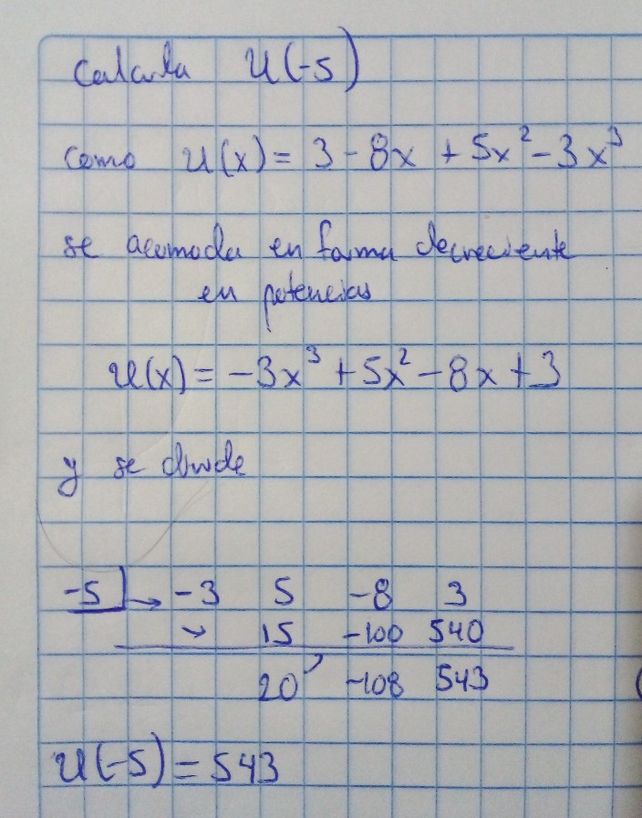 Calcula U(-5)
como U(x) = 3 - 8x + 5x² - 3x³
se acomoda en forma decreciente
en potencias
U(x) = -3x³ + 5x² - 8x + 3
y se divide
-5 → -3 5 -8 3
15 -100 540
20 -108 543
U(-5) = 543